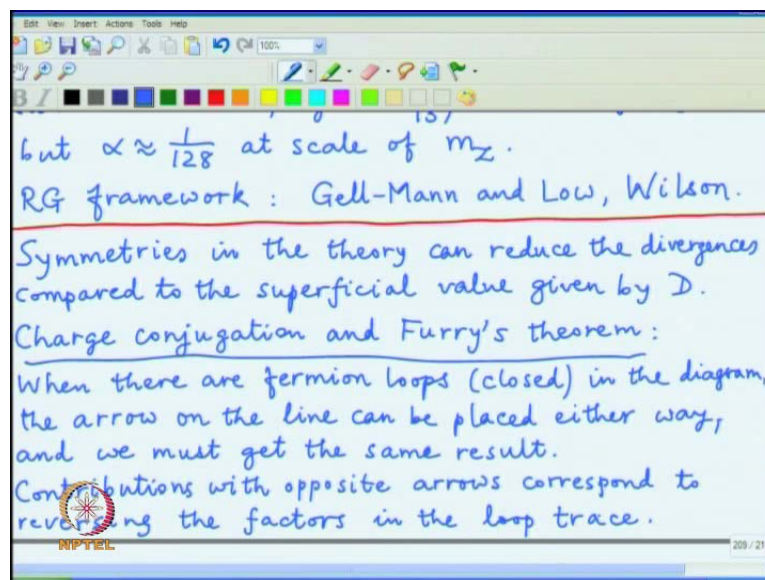 Edit View Insert Actions Tools Help
100%
B I
but α ≈ 1/128 at scale of m_Z.
RG framework : Gell-Mann and Low, Wilson.
Symmetries in the theory can reduce the divergences
compared to the superficial value given by D.
Charge conjugation and Furry's theorem :
When there are fermion loops (closed) in the diagram,
the arrow on the line can be placed either way,
and we must get the same result.
Contributions with opposite arrows correspond to
reversing the factors in the loop trace.
NPTEL
209 / 21